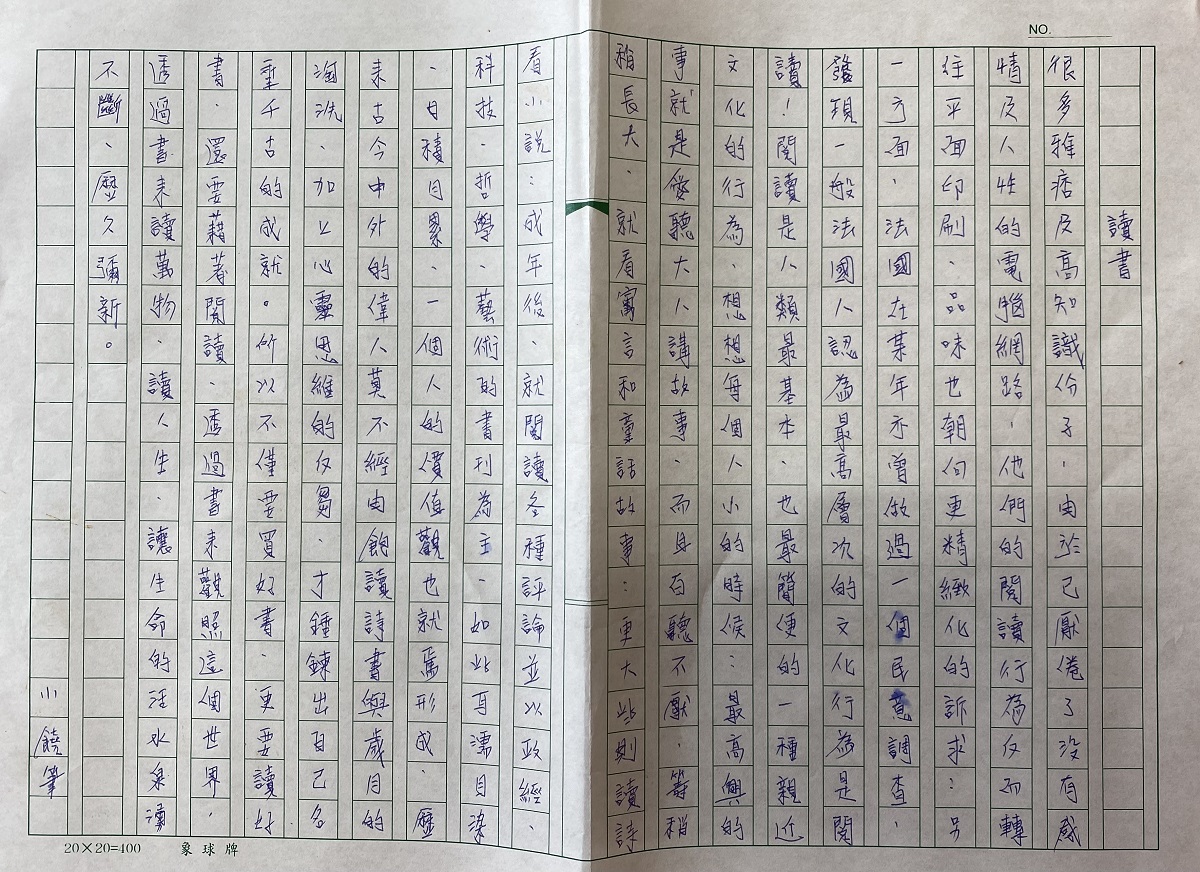 NO.
讀書
很多雅痞及高知識份子,由於已厭倦了沒有感
情及人性的電腦網路,他們的閱讀行為反而轉
往平面印刷、品味也朝向更精緻化的訴求:另
一方面,法國在某年亦曾做過一個民意調查,
發現一般法國人認為最高層次的文化行為是閱
讀!閱讀是人類最基本、也最簡便的一種親近
文化的行為、想想每個人小的時候:最高興的
事就是愛聽大人講故事、而且百聽不厭,等稍
稍長大、就看寓言和童話故事:更大些則讀詩
看小說:成年後、就閱讀各種評論並以政經、
科技、哲學、藝術的書刊為主、如此耳濡目染
、日積月累、一個人的價值觀也就焉形成、歷
來古今中外的偉人莫不經由飽讀詩書與歲月的
淘洗、加上心靈思維的反芻、才錘鍊出自己名
垂千古的成就。所以不僅要買好書、更要讀好
書、還要藉著閱讀、透過書來觀照這個世界、
透過書來讀萬物、讀人生、讓生命的活水泉湧
不斷、歷久彌新。
小饒筆
20×20=400 象球牌